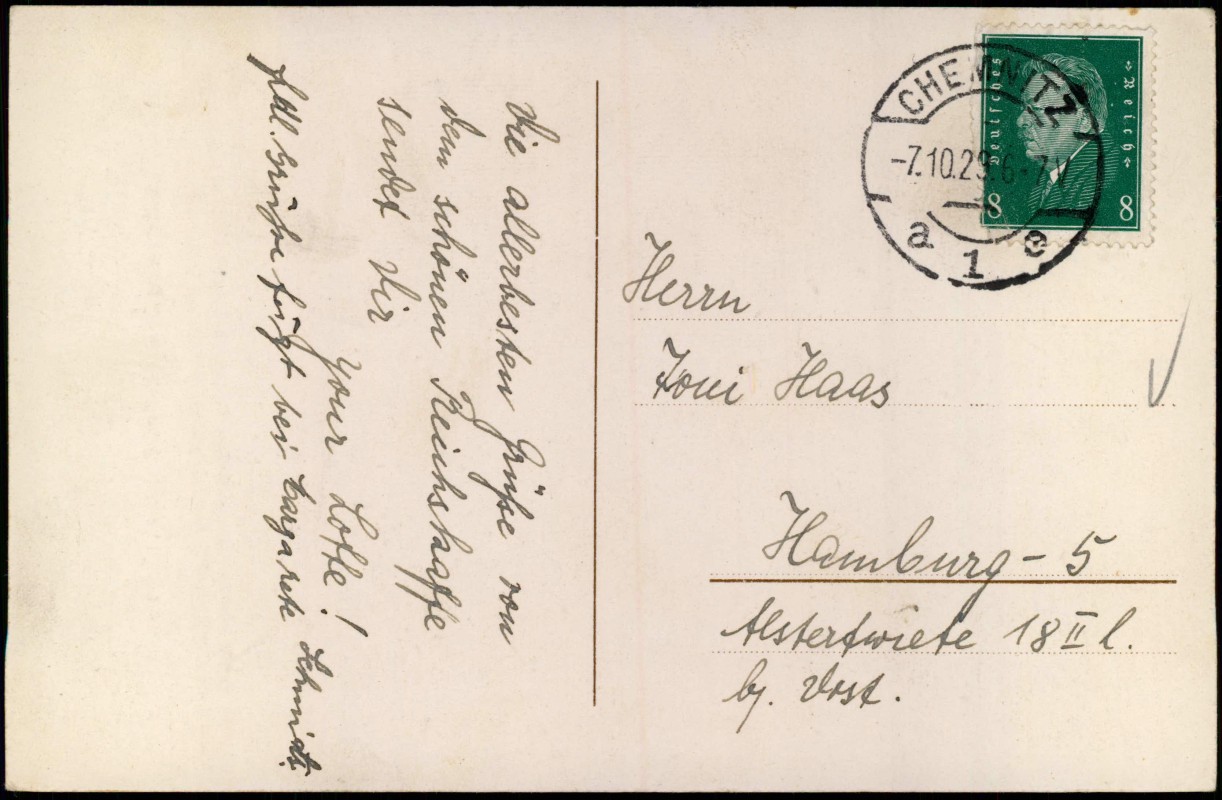 Die allerbesten Grüße von
dem schönen Reichskaffe
sendet Dir
your Lotte!
Grüße fügt bei Margarete Schmidt.
CHEMNITZ
-7.10.29. 6-7 V
a 1 e
Deutsches
Reich
8 8
Herrn
Toni Haas
Hamburg - 5
Alstertwiete 18 II l.
b/. Vost.